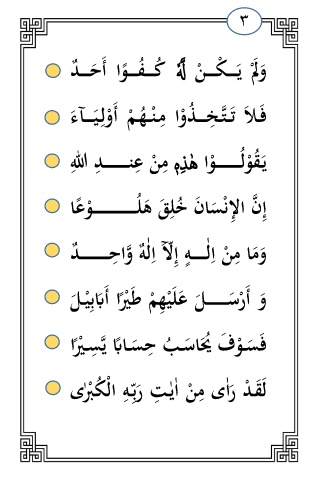 ٣
وَلَمْ يَكُنْ لَّهٗ كُفُوًا أَحَدٌ
فَلاَ تَتَّخِذُوْا مِنْهُمْ أَوْلِيَآءَ
يَقُوْلُوْا هٰذِهٖ مِنْ عِنْدِ اللهِ
إِنَّ الإِنْسَانَ خُلِقَ هَلُوْعًا
وَمَا مِنْ اِلٰهٍ إِلَّآ اِلٰهٌ وَّاحِدٌ
وَ أَرْسَلَ عَلَيْهِمْ طَيْرًا أَبَابِيْلَ
فَسَوْفَ يُحَاسَبُ حِسَابًا يَّسِيْرًا
لَقَدْ رَاٰى مِنْ اٰيٰتِ رَبِّهِ الْكُبْرٰى